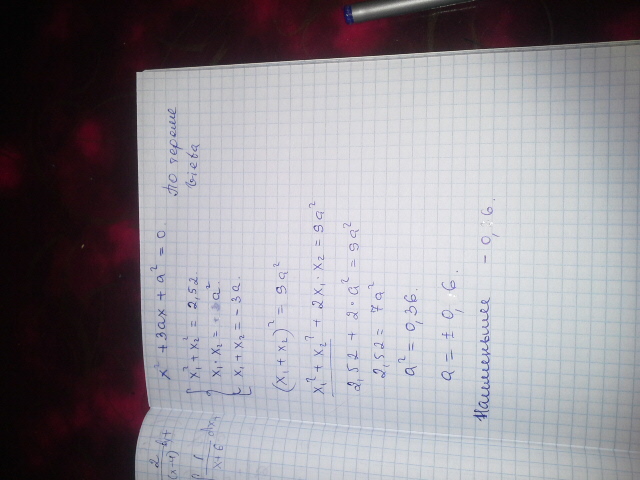 x² + 3ax + a² = 0.
По тереме
Виета
{ x₁² + x₂² = 2,52.
x₁ · x₂ = a².
x₁ + x₂ = -3a.
(x₁ + x₂)² = 9a²
x₁² + x₂² + 2x₁ · x₂ = 9a²
2,52 + 2 · a² = 9a²
2,52 = 7a²
a² = 0,36.
a = ± 0,6.
Наименьшее - 0,6.